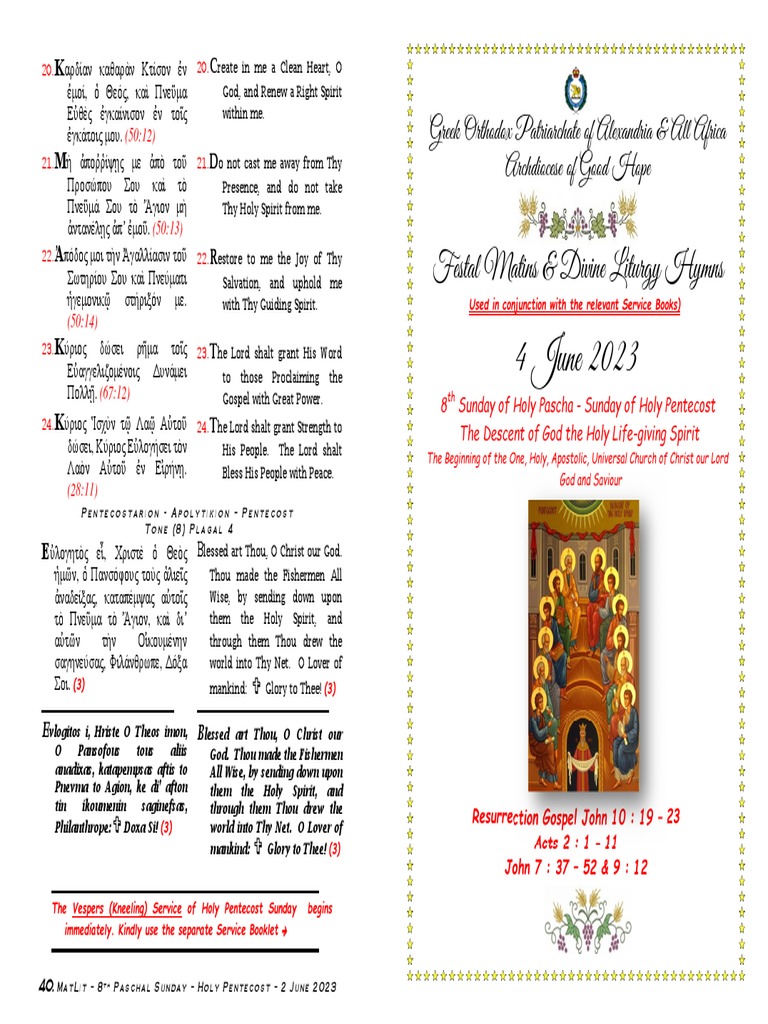 20.Καρδίαν καθαρὰν Κτίσον ἐν
ἐμοί, ὁ Θεὸς, καὶ Πνεῦμα
Εὐθὲς ἐγκαίνισον ἐν τοῖς
ἐγκάτοις μου. (50:12)
21.Μὴ ἀπορρίψῃς με ἀπὸ τοῦ
Προσώπου Σου καὶ τὸ
Πνεῦμά Σου τὸ Ἅγιον μὴ
ἀντανέλῃς ἀπ' ἐμοῦ. (50:13)
22.Ἀπόδος μοι τὴν Ἀγαλλίασιν τοῦ
Σωτηρίου Σου καὶ Πνεύματι
ἡγεμονικῷ στήριξόν με.
(50:14)
23.Κύριος δώσει ρῆμα τοῖς
Εὐαγγελιζομένοις Δυνάμει
Πολλῇ. (67:12)
24.Κύριος Ἰσχὺν τῷ Λαῷ Αὐτοῦ
δώσει, Κύριος Εὐλογήσει τὸν
Λαὸν Αὐτοῦ ἐν Εἰρήνῃ.
(28:11)
20.Create in me a Clean Heart, O
God, and Renew a Right Spirit
within me.
21.Do not cast me away from Thy
Presence, and do not take
Thy Holy Spirit from me.
22.Restore to me the Joy of Thy
Salvation, and uphold me
with Thy Guiding Spirit.
23.The Lord shalt grant His Word
to those Proclaiming the
Gospel with Great Power.
24.The Lord shalt grant Strength to
His People. The Lord shalt
Bless His People with Peace.
Pentecostarion - Apolytikion - Pentecost
Tone (8) Plagal 4
Εὐλογητὸς εἶ, Χριστὲ ὁ Θεὸς
ἡμῶν, ὁ Πανσόφους τοὺς ἁλιεῖς
ἀναδείξας, καταπέμψας αὐτοῖς
τὸ Πνεῦμα τὸ Ἅγιον, καὶ δι'
αὐτῶν τὴν Οἰκουμένην
σαγηνεύσας, Φιλάνθρωπε, Δόξα
Σοι. (3)
Blessed art Thou, O Christ our God.
Thou made the Fishermen All
Wise, by sending down upon
them the Holy Spirit, and
through them Thou drew the
world into Thy Net. O Lover of
mankind: ✞ Glory to Thee! (3)
Evlogitos i, Hriste O Theos imon,
O Pansofous tous aliis
anadixas, katapempsas aftis to
Pnevma to Agion, ke di' afton
tin ikoumenin saginefsas,
Philanthrope:✞ Doxa Si! (3)
Blessed art Thou, O Christ our
God. Thou made the Fishermen
All Wise, by sending down upon
them the Holy Spirit, and
through them Thou drew the
world into Thy Net. O Lover of
mankind: ✞ Glory to Thee! (3)
The Vespers (Kneeling) Service of Holy Pentecost Sunday begins
immediately. Kindly use the separate Service Booklet →
40. MatLit - 8th Paschal Sunday - Holy Pentecost - 2 June 2023
Greek Orthodox Patriarchate of Alexandria & All Africa
Archdiocese of Good Hope
Festal Matins & Divine Liturgy Hymns
Used in conjunction with the relevant Service Books)
4 June 2023
8th Sunday of Holy Pascha - Sunday of Holy Pentecost
The Descent of God the Holy Life-giving Spirit
The Beginning of the One, Holy, Apostolic, Universal Church of Christ our Lord
God and Saviour
Resurrection Gospel John 10 : 19 - 23
Acts 2 : 1 - 11
John 7 : 37 - 52 & 9 : 12